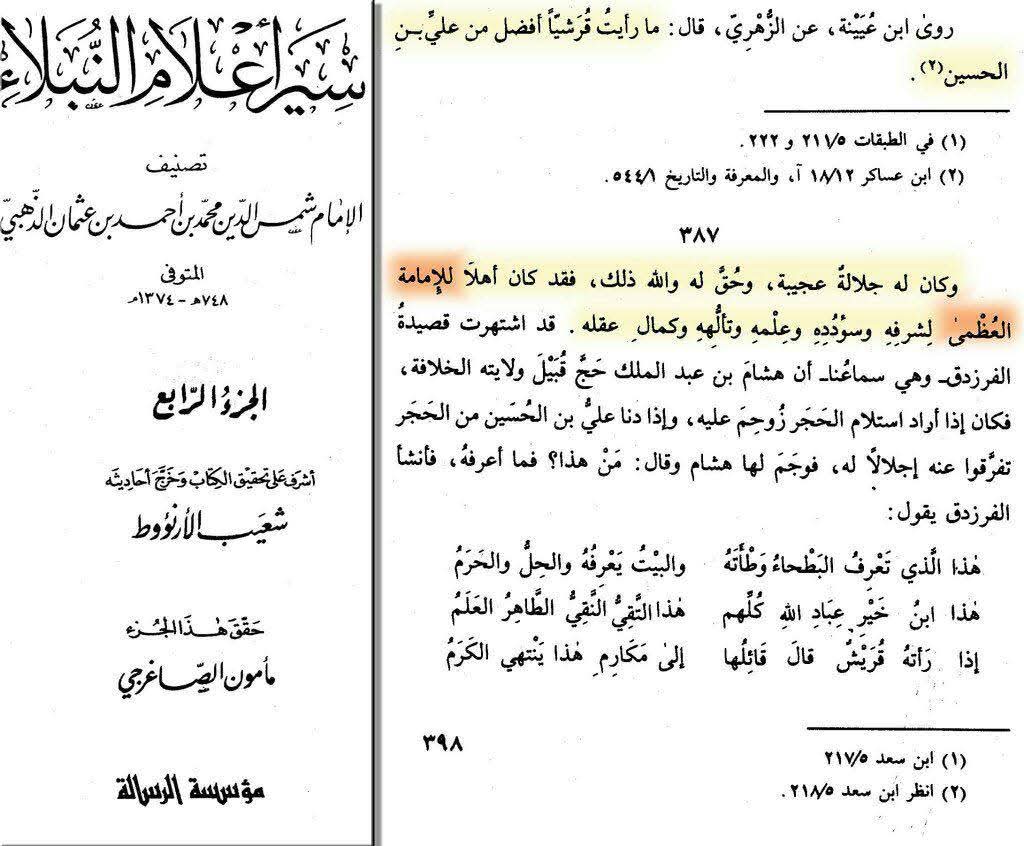 سِيَر أعْلَام النُّبَلاء
تصنيف
الإمام شمس الدّين محمّد بن أحمد بن عثمان الذّهبيّ
المتوفى
٧٤٨هـ - ١٣٧٤م
الجزء الرّابع
أشرف على تحقيق الكتاب وخرّج أحاديثه
شعَيب الأرنؤوط
حقّق هذا الجزء
مأمون الصّاغرجي
مؤسسة الرسالة
روىٰ ابن عُيَيْنة، عن الزُّهْريّ، قال: ما رأيتُ قُرَشيّاً أفضل من عليِّ بـنِ
الحسين(٢).
(١) في الطبقات ٢١١/٥ و ٢٢٢.
(٢) ابن عساكر ١٨/١٢ آ، والمعرفة والتاريخ ٥٤٤/١.
٣٨٧
وكان له جلالةٌ عجيبة، وحُقَّ له والله ذلك، فقد كان أهلاً للإمامة
العُظْمىٰ لِشرفِهِ وسؤدُدِهِ وعِلْمهِ وتألُّههِ وكمالِ عقله. قد اشتهرت قصيدةُ
الفرزدق ـ وهي سماعُنا ـ أن هشامَ بن عبد الملك حَجَّ قُبَيْلَ ولايته الخلافة،
فكان إذا أراد استلام الحَجَر زُوحِمَ عليه، وإذا دنا عليُّ بن الحُسَين من الحَجَر
تفرَّقوا عنه إجلالًا له، فوجَمَ لها هشام وقال: مَنْ هذا؟ فما أعرفهُ، فأنشأ
الفرزدق يقول:
هٰذا الَّذي تَعْرِفُ البَطْحاءُ وَطْأَتَهُ والبيْتُ يَعْرِفُهُ والحِلُّ والحَرَمُ
هٰذا ابنُ خَيْرِ عِبَادِ اللهِ كُلِّهم هٰذا التَّقِيُّ النَّقِيُّ الطَّاهِرُ العَلَمُ
إذا رَأتهُ قُرَيْشٌ قالَ قَائِلُها إلىٰ مَكَارِمِ هٰذا يَنْتهي الكَرَمُ
(١) ابن سعد ٢١٧/٥
(٢) انظر ابن سعد ٢١٨/٥.
٣٩٨